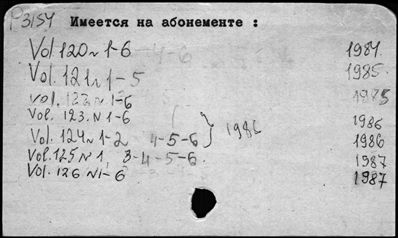 P3154 Имеется на абонементе :
Vol. 120 N 1-6 1984
Vol. 121 N 1-5 1985
Vol. 122 N 1-6 1985
Vol. 123. N 1-6 1986
Vol. 124 N 1-2 4-5-6 } 1986 1986
Vol. 125 N 1, 3-4-5-6. 1987
Vol. 126 N 1-6 1987